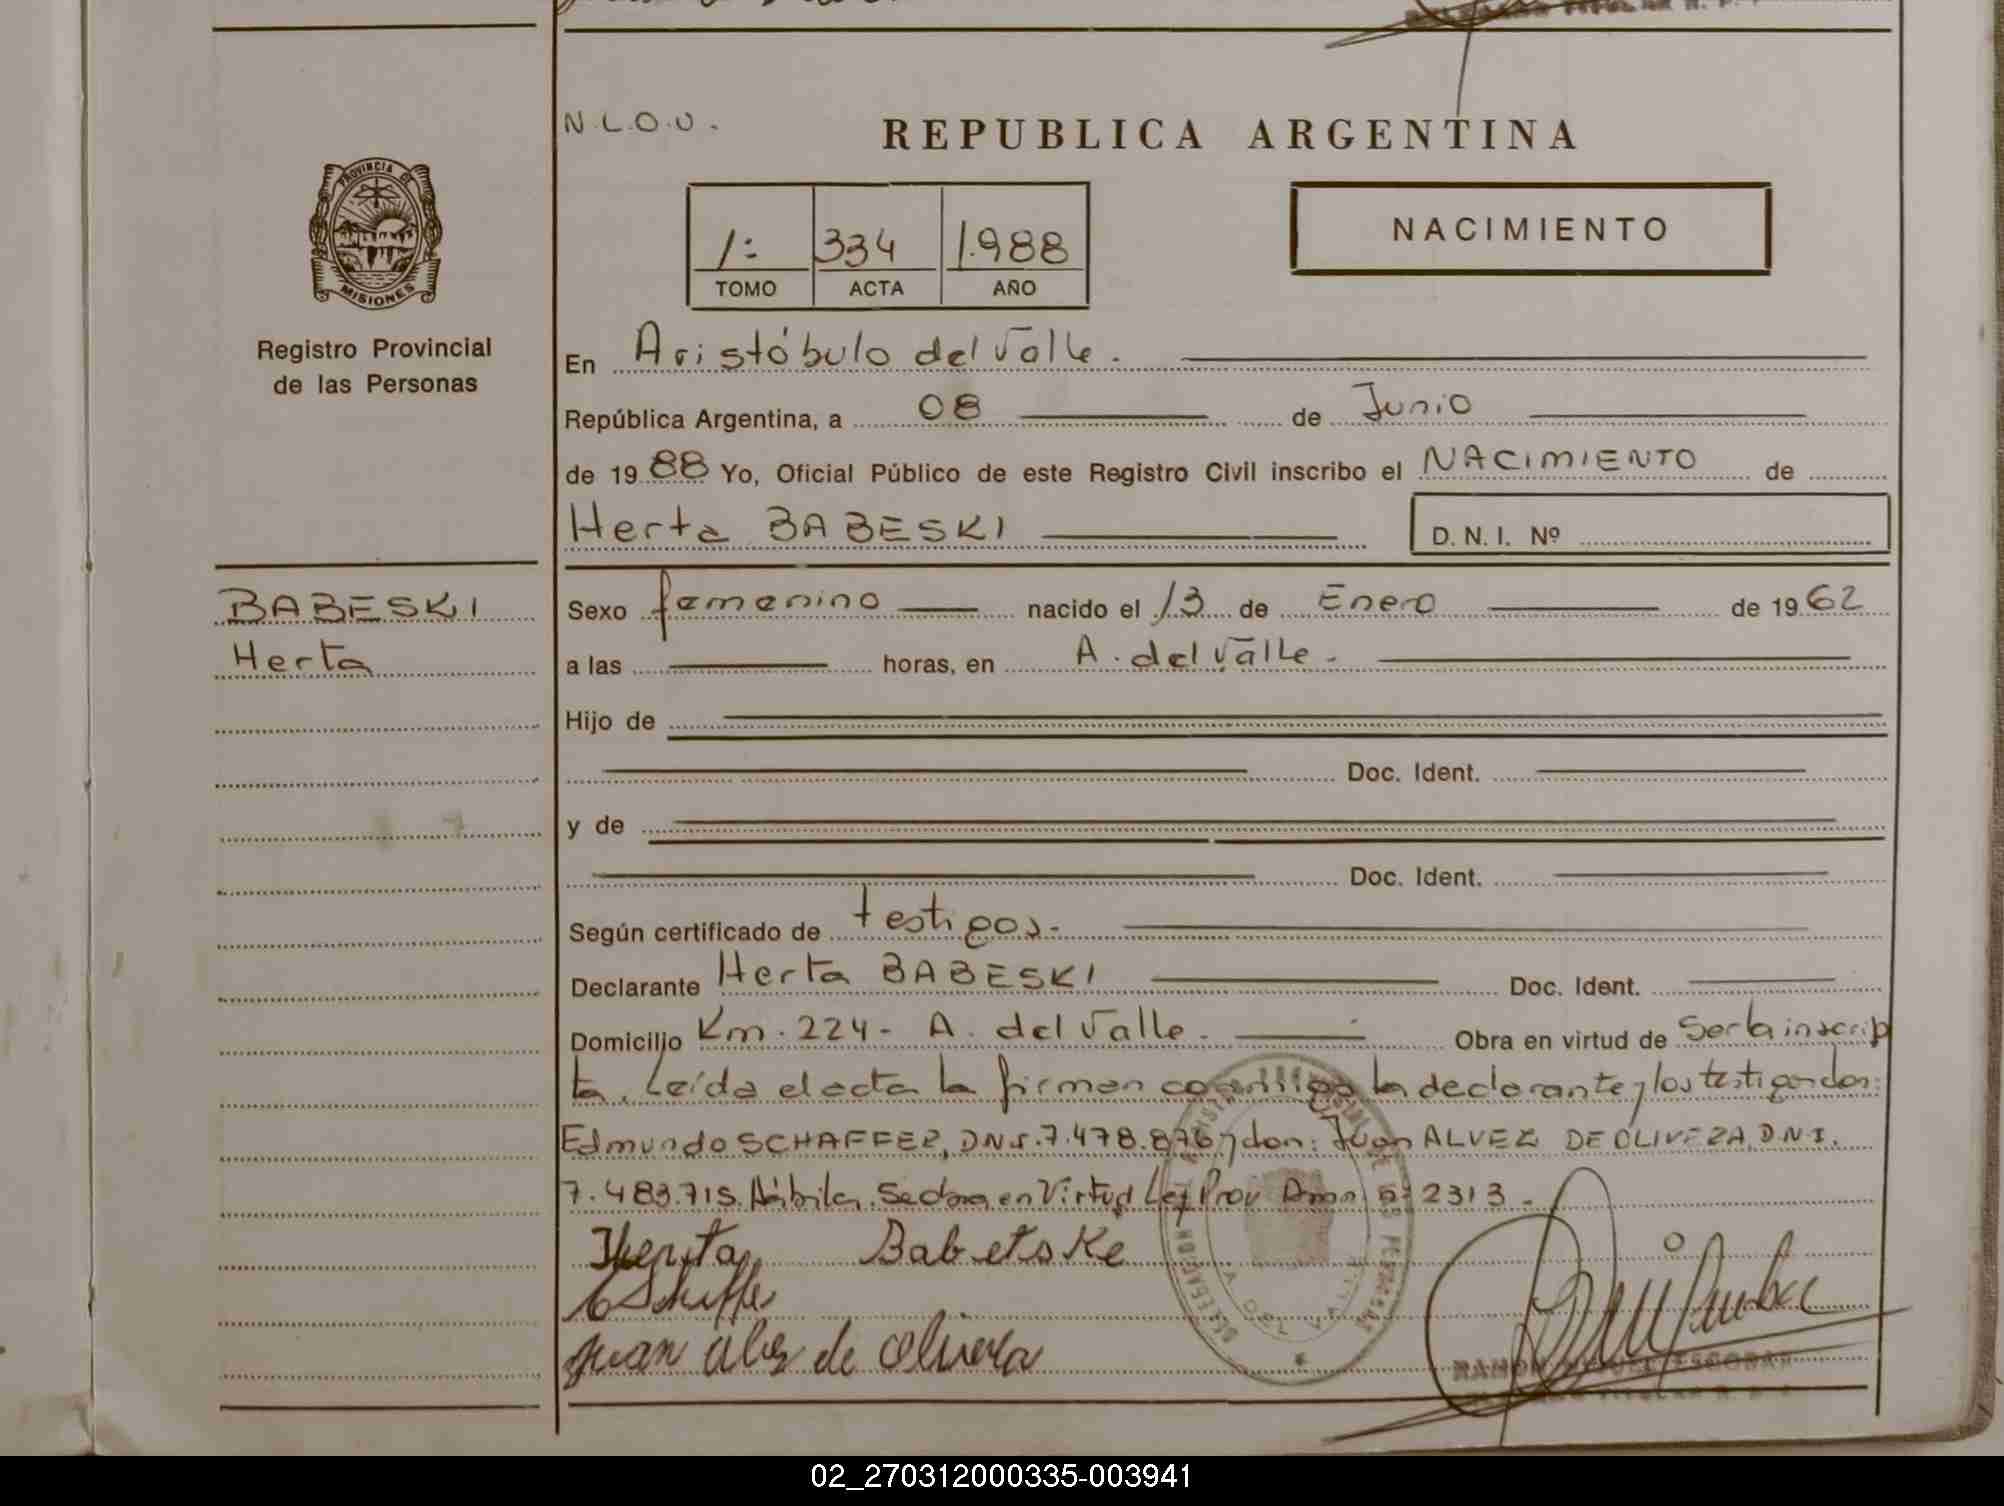 N.L.O.U.
REPUBLICA ARGENTINA
PROVINCIA DE
MISIONES
1: 334 1.988
TOMO ACTA AÑO
NACIMIENTO
Registro Provincial
de las Personas
En Aristóbulo del Valle.
República Argentina, a 08 de Junio
de 19 88 Yo, Oficial Público de este Registro Civil inscribo el NACIMIENTO de
Herta BABESKI D. N. I. Nº
BABESKI
Herta
Sexo femenino nacido el 13 de Enero de 19 62
a las horas, en A. del Valle.
Hijo de
Doc. Ident.
y de
Doc. Ident.
Según certificado de testigos.
Declarante Herta BABESKI Doc. Ident.
Domicilio Km. 224- A. del Valle. Obra en virtud de Ser la inscrip
ta. Leída el acta la firman conmigo la declarante y los testigos don:
Edmundo SCHAFFER, D.N.I. 7.478.876 y don: Juan ALVEZ DE OLIVEZA, D.N.I.
7.483.715. Hábiles. en Virtud Ley Prov n: 2313.
Herta Babetske
Juan alvez de olivera
RAMON MIGUEL ESCOBAR
02_270312000335-003941